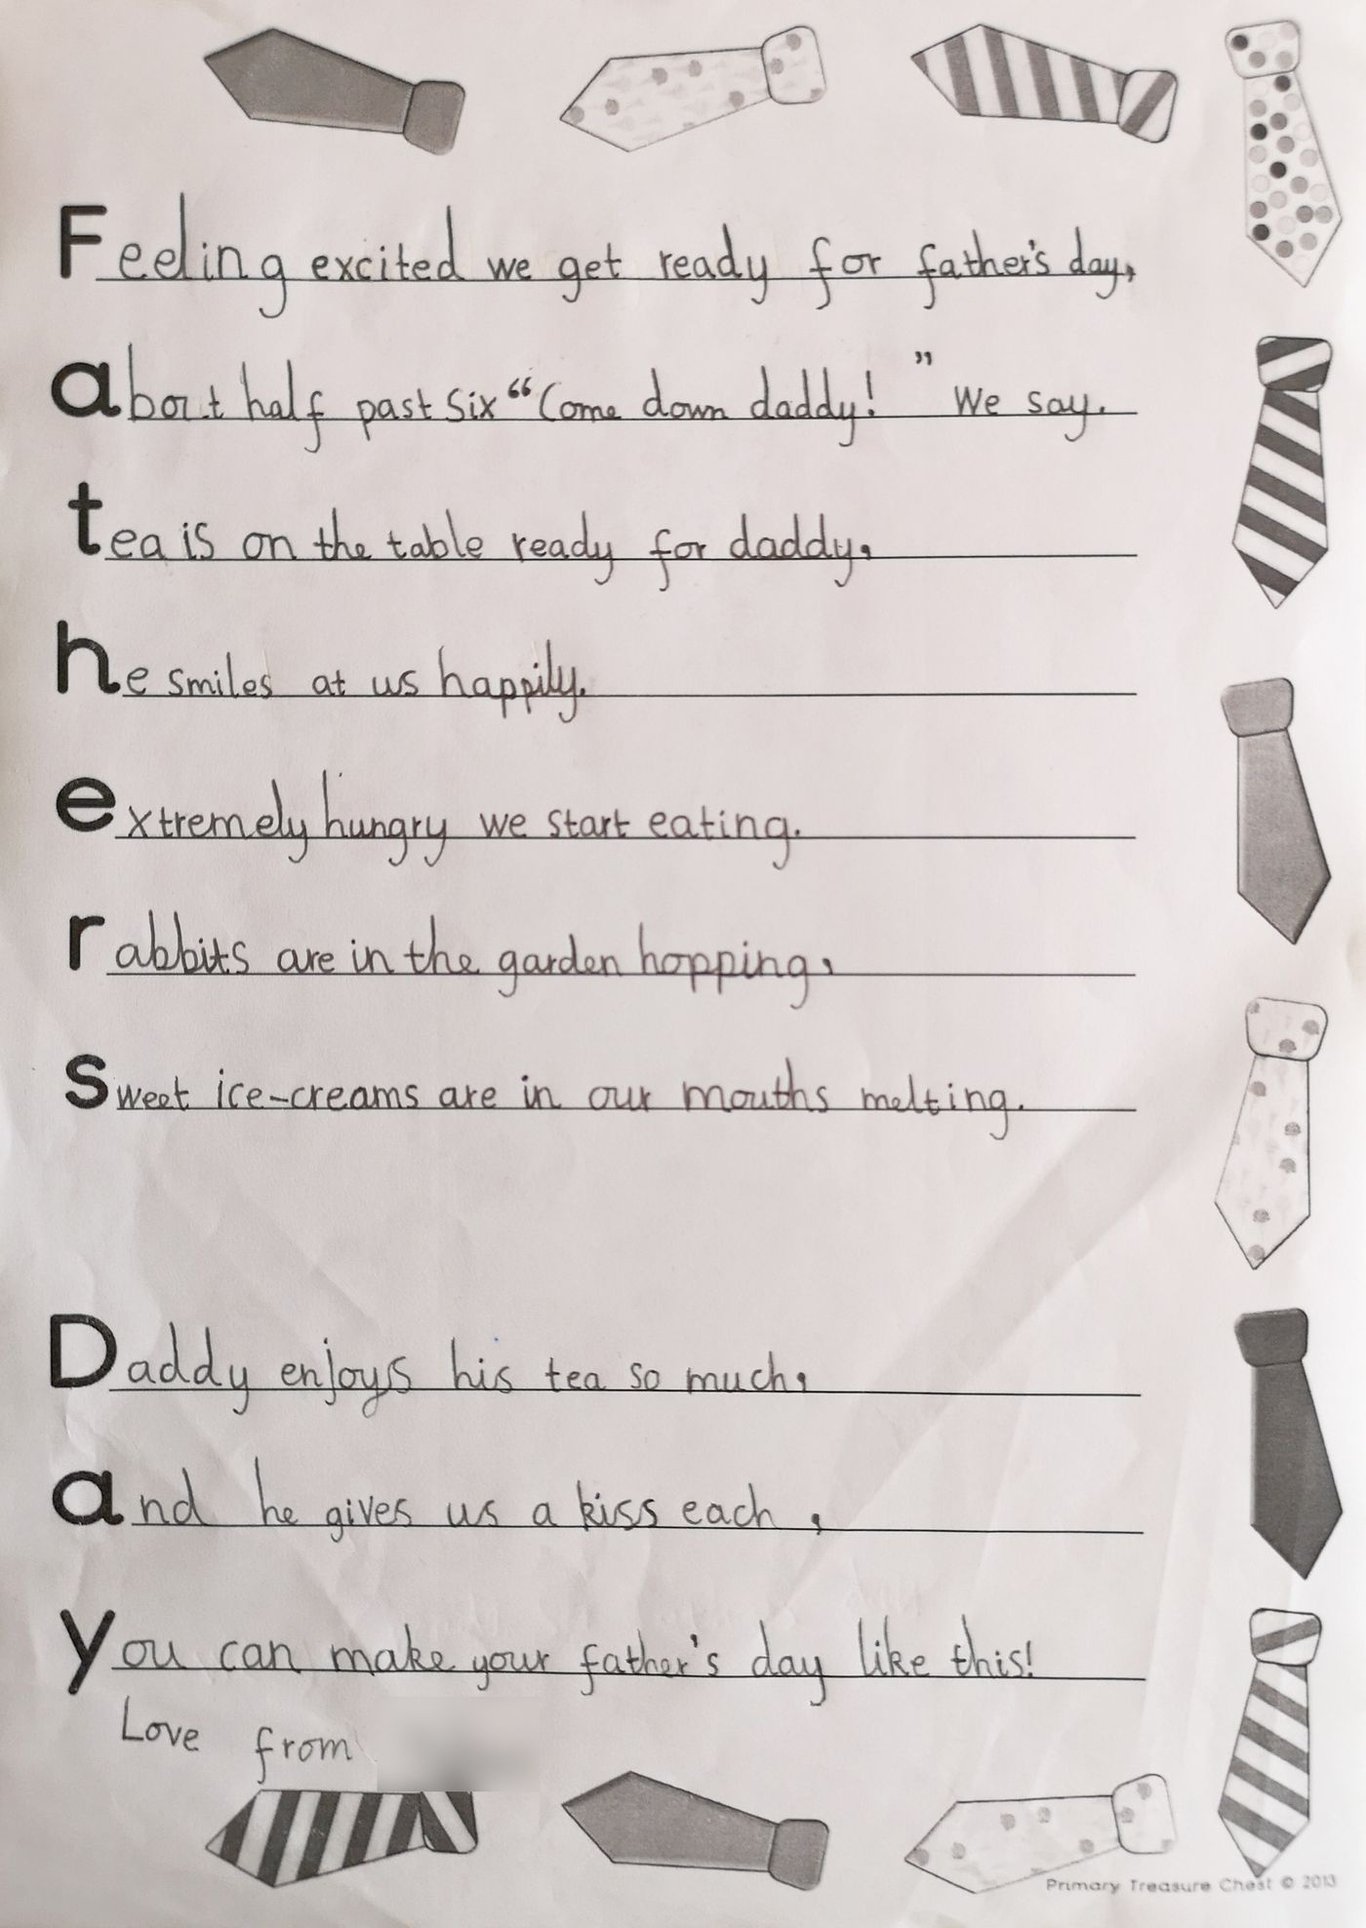 Feeling excited we get ready for father's day,
about half past six “Come down daddy!” We say.
tea is on the table ready for daddy,
he smiles at us happily.
extremely hungry we start eating.
rabbits are in the garden hopping,
sweet ice-creams are in our mouths melting.
Daddy enjoys his tea so much,
and he gives us a kiss each,
you can make your father's day like this!
Love from
Primary Treasure Chest © 2013